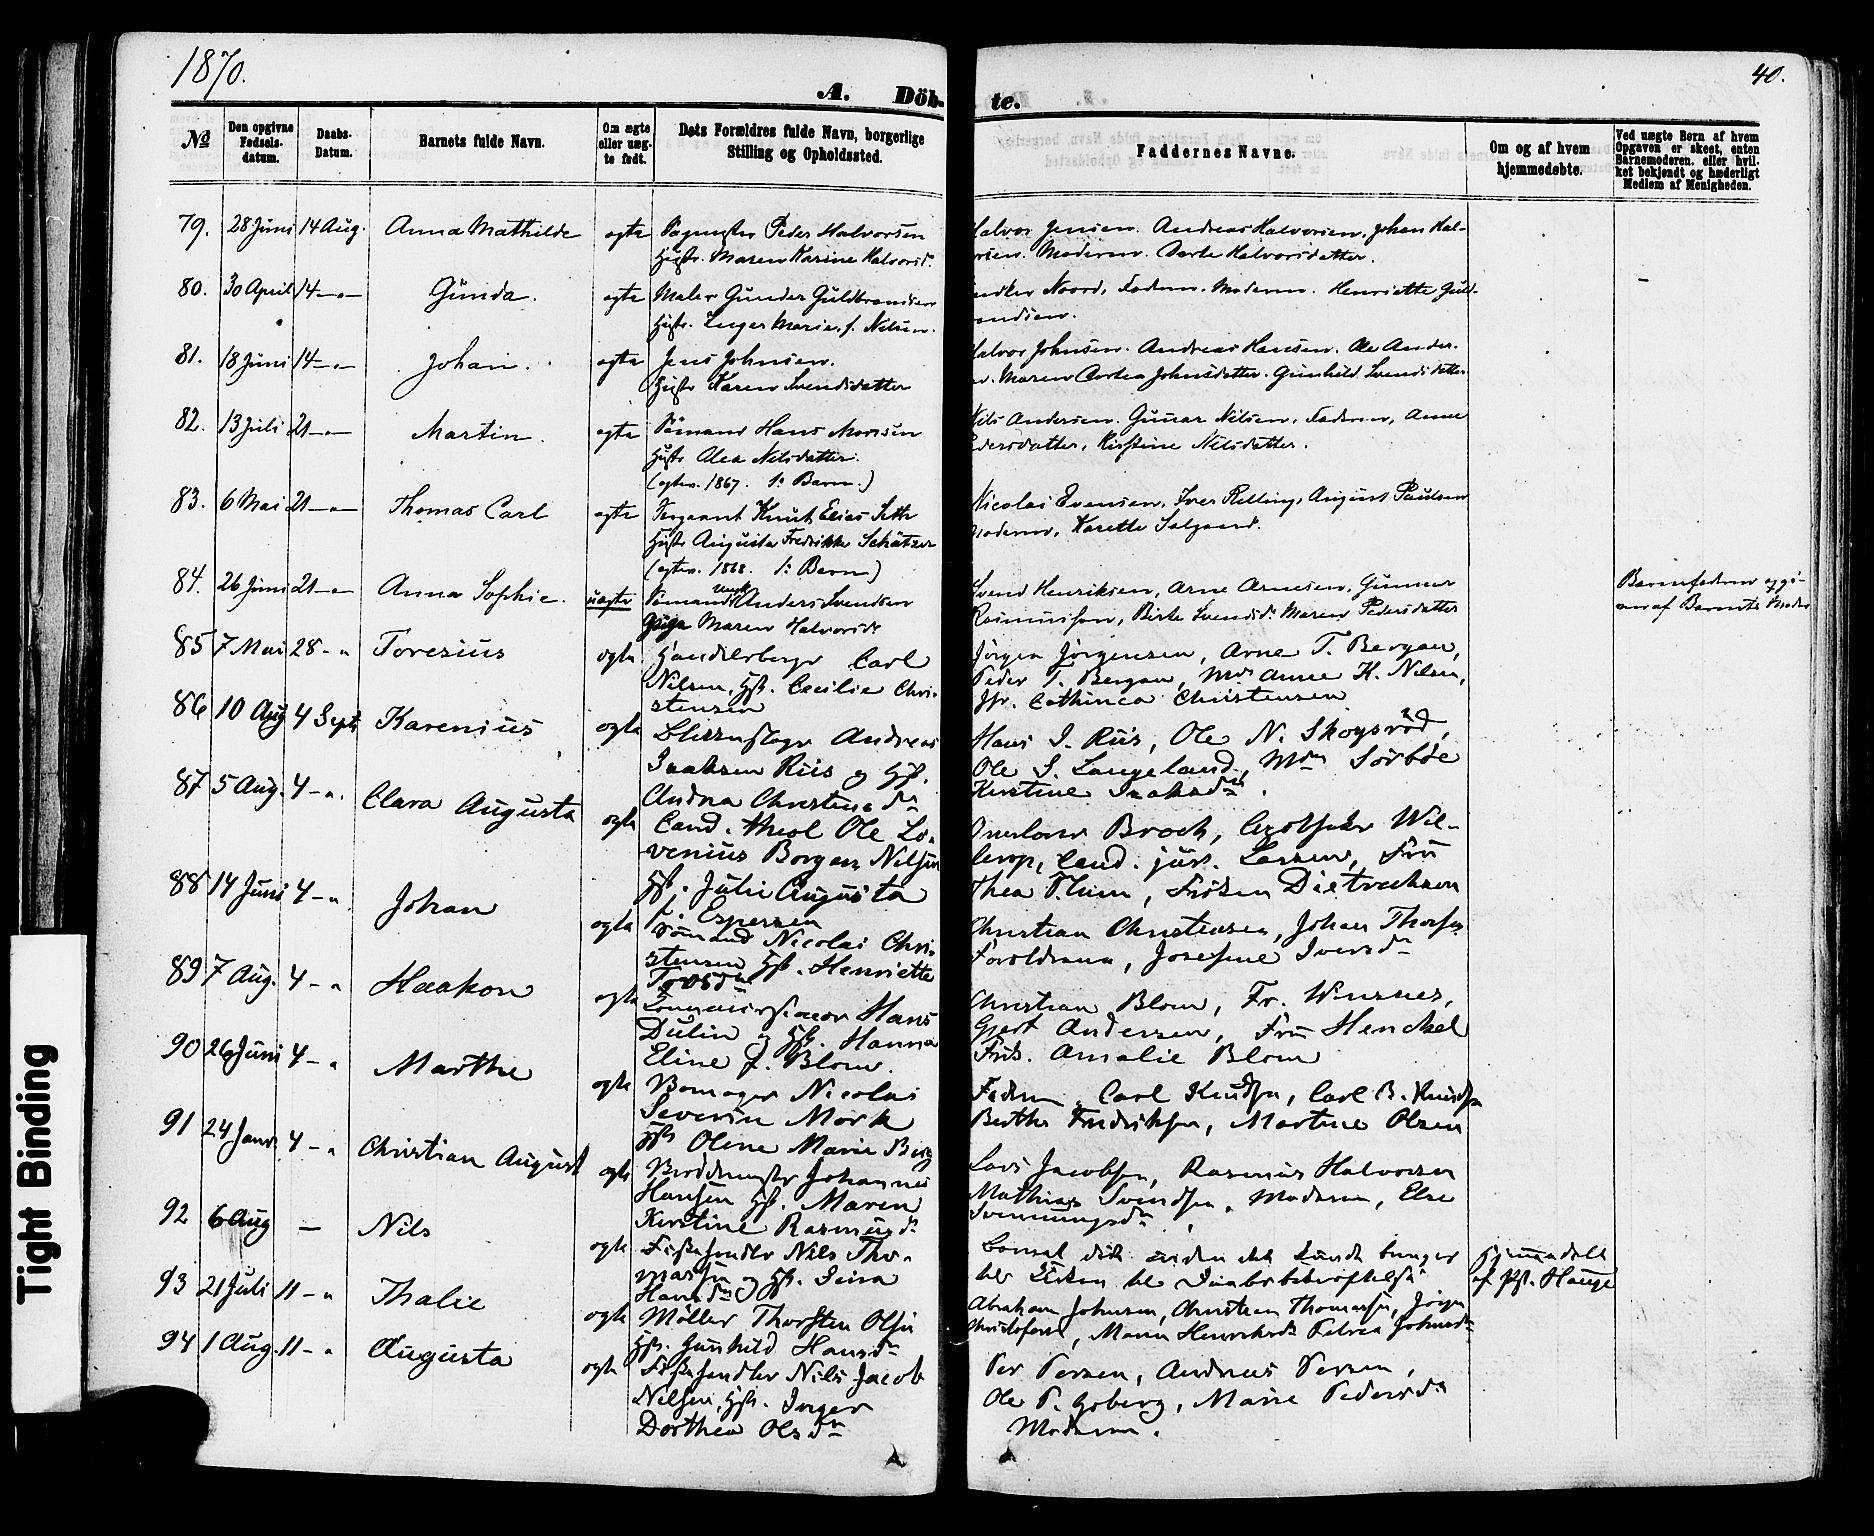 1870.
40.
A. Döb-
te.
No
Den opgivne Fødsels-datum.
Daabs-Datum.
Barnets fulde Navn.
Om ægte eller uæg-te født.
Dets Forældres fulde Navn, borgerlige Stilling og Opholdssted.
Faddernes Navne.
Om og af hvem hjemmedøbte.
Ved uægte Børn af hvem Opgaven er skeet, enten Barnemoderen. eller hvil-ket bekjendt og hæderligt Medlem af Menigheden.
79. 28 Juni 14 Aug. Anna Mathilde ægte Peder Halvorsen
Hustr. Maren Karine Halvorsd.
Halvor Jensen. Andreas Halvorsen. Johan Hal-
Moderen. Dorte Halvorsdatter.
80. 30 April 14 -"- Gunda. ægte Maler Gunder Guldbrandsen
Hustr. Inger Marie, f. Nilsen.
Noord, Faderen. Moderen. Henriette Gul-
81. 18 Juni 14 -"- Johan. ægte Jens Johnsen.
Hustr Karen Svendsdatter
Halvor Johnsen. Andreas Hansen. Ole Ander-
Maren Dortea Johnsdatter. Gunhild Svendsdatter
82. 13 Juli 21 -"- Martin. ægte Sömand Hans Monsen
Hustr Alea Nilsdatter.
(egtev. 1867. 1. Barn.)
Nils Andersen. Gunar Nilsen. Faderen, Anne
Pedersdatter, Kirstine Nilsdatter.
83. 6 Mai 21 -"- Thomas Carl ægte Sergeant Knut Elias Seth
Hustr Augusta Fredrikke Schötzer
(egtev. 1868. 1. Barn)
Nicolai Evensen, Iver Relling, August Paulsen
Moderen, Karette Salgaard.
84. 26 Juni 21 -"- Anna Sophie. uægte Sömand Anders Svendsen
Pige Maren Halvorsd.
Svend Henriksen, Arne Arnesen, Gunner
Rasmussen, Birte Svendsd. Maren Pedersdatter
Barnefaderen opgi-
en af Barnets Moder
85 7 Mai 28 - " Toresius ægte Handelsborger Carl
Nilsen, Hst. Cecilie Chri-
stensen
Jörgen Jörgensen, Arne T. Bergan,
Peder T. Bergan, Md. Anne K. Nilsen,
Jfr. Cathinca Christensen
86 10 Aug 4 Sept. Karenius ægte Blikkenslager Andreas
Isaksen Riis og Hst.
Andrea Christensdr
Hans I. Riis, Ole N. Skogsröd,
Ole S. Langeland, Mdm Sörböe
Kirstine Isaksdr.
87 5 Aug. 4 - ". Clara Augusta ægte Cand. theol Ole Lo-
venius Borgen Nilsen
Hst. Julie Augusta
f. Espersen
Overlærer Broch, Apotheker Wil-
lerup, Cand. jur. Lassen, Fru
Thea Plum, Fröken Dietrichson
88 14 Juni 4 - " Johan ægte Sömand Nicolai Chri-
stensen Hst. Henriette
Torsdr
Christian Christensen, Johan Thorsen
Forældrene, Josefine Iversdr
89 7 Aug. 4 - " Haakon ægte Hans
Dulin og Hst. Hanna
Eline f. Blom.
Christian Blom, Fr. Winsnes,
Gjert Andersen, Fru Henckel
Frk. Amalie Blom
90 26 Juni 4 - " Marthe ægte Nicolai
Severin Mörk
Hst Oline Marie Berg
Faderen, Carl Knudsen, Carl B. Knudsen
Berthe Fredriksen, Martine Olsen
91 24 Janr. 4 - " Christian August ægte Johannes
Hansen Hst. Maren
Kirstine Rasmusdr
Lars Jacobsen, Rasmus Halvorsen
Mathias Svendsen, Moderen, Else
Svenningsdr
92 6 Aug — Nils ægte Fiskehandler Nils Tho-
massen og Hst. Sina
Hansdr
Hjemmedöbt
af Pst. Hauge
93 21 Juli 11 - " Thalie ægte Möller Thorsten Olsen
Hst. Gunhild Hansdr
Abraham Johnsen, Christian Thomassen, Jörgen
Christofersen, Maren Henriksdr Petrea Johnsdr
94 1 Aug. 11 - " Augusta ægte Fiskehandler Nils Jacob
Nilsen, Hst. Inger
Dorthea Olsdr
Per Persen, Andreas Persen,
Ole P. Goberg, Marie Pedersdr
Moderen.
Tight Binding